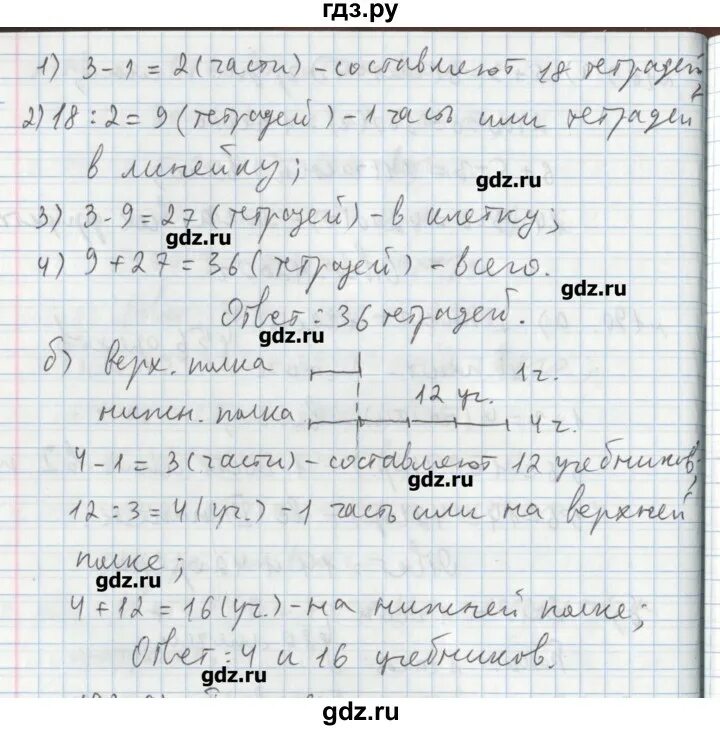 гдз.ру
1) 3 - 1 = 2 (части) - составляют 18 тетрадей,
2) 18 : 2 = 9 (тетрадей) - 1 часть или тетрадей
в линейку;
gdz.ru
3) 3 · 9 = 27 (тетрадей) - в клетку;
gdz.ru
4) 9 + 27 = 36 (тетрадей) - всего.
gdz.ru
Ответ: 36 тетрадей.
gdz.ru
б) верх. полка 1 ч.
12 уч.
нижн. полка 4 ч.
4 - 1 = 3 (части) - составляют 12 учебников;
gdz.ru
12 : 3 = 4 (уч.) - 1 часть или на верхней
полке;
gdz.ru
4 + 12 = 16 (уч.) - на нижней полке;
Ответ: 4 и 16 учебников.
gdz.ru
gdz.ru